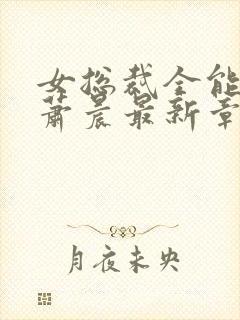 女总裁全能
萧晨最新章
月夜未央